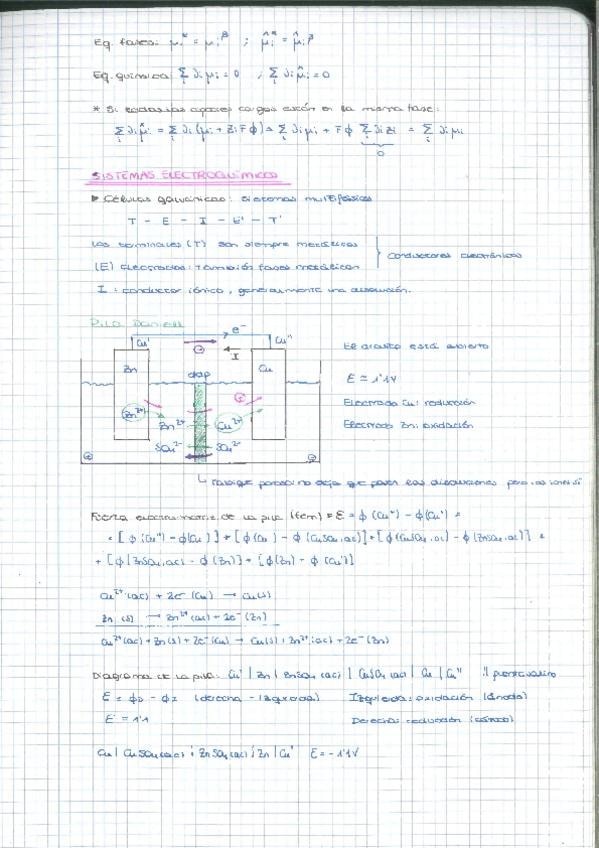 Eq. fases: μᵢ^α = μᵢ^β ; μ̂ᵢ^α = μ̂ᵢ^β
Eq. química: Σᵢ νᵢμᵢ = 0 ; Σᵢ νᵢμ̂ᵢ = 0
* Si todas las especies cargas están en la misma fase:
Σᵢ νᵢμ̂ᵢ = Σᵢ νᵢ(μᵢ + zᵢFφ) = Σᵢ νᵢμᵢ + Fφ Σᵢ νᵢzᵢ = Σᵢ νᵢμᵢ
0
SISTEMAS ELECTROQUÍMICOS
▶ Células galvánicas: sistemas multifásicos
T - E - I - E' - T'
Los terminales (T) son siempre metálicos
(E) Electrodos: también fases metálicas
conductores electrónicos
I: conductor iónico, generalmente una disolución.
Pila Daniell
e⁻
Cu' Cu''
I
Zn dap Cu
Zn²⁺ Zn²⁺ Cu²⁺
SO₄²⁻ SO₄²⁻
El circuito está abierto
E = 1'1V
Electrodo Cu: reducción
Electrodo Zn: oxidación
tabique poroso no deja que pasen las disoluciones pero los iones sí
Fuerza electromotriz de la pila (fem) = E = φ(Cu'') - φ(Cu') =
= [φ(Cu'') - φ(Cu)] + [φ(Cu) - φ(CuSO₄, ac)] + [φ(CuSO₄, ac) - φ(ZnSO₄, ac)] +
+ [φ(ZnSO₄, ac) - φ(Zn)] + [φ(Zn) - φ(Cu')]
Cu²⁺(ac) + 2e⁻(Cu) → Cu(s)
Zn(s) → Zn²⁺(ac) + 2e⁻(Zn)
Cu²⁺(ac) + Zn(s) + 2e⁻(Cu) → Cu(s) + Zn²⁺(ac) + 2e⁻(Zn)
Diagrama de la pila: Cu' | Zn | ZnSO₄(ac) | CuSO₄(ac) | Cu | Cu'' || puente salino
E = φD - φI (derecha - izquierda) Izquierda: oxidación (ánodo)
E = 1'1 Derecha: reducción (cátodo)
Cu | CuSO₄(ac) ¦ ZnSO₄(ac) ¦ Zn | Cu' E = -1'1V